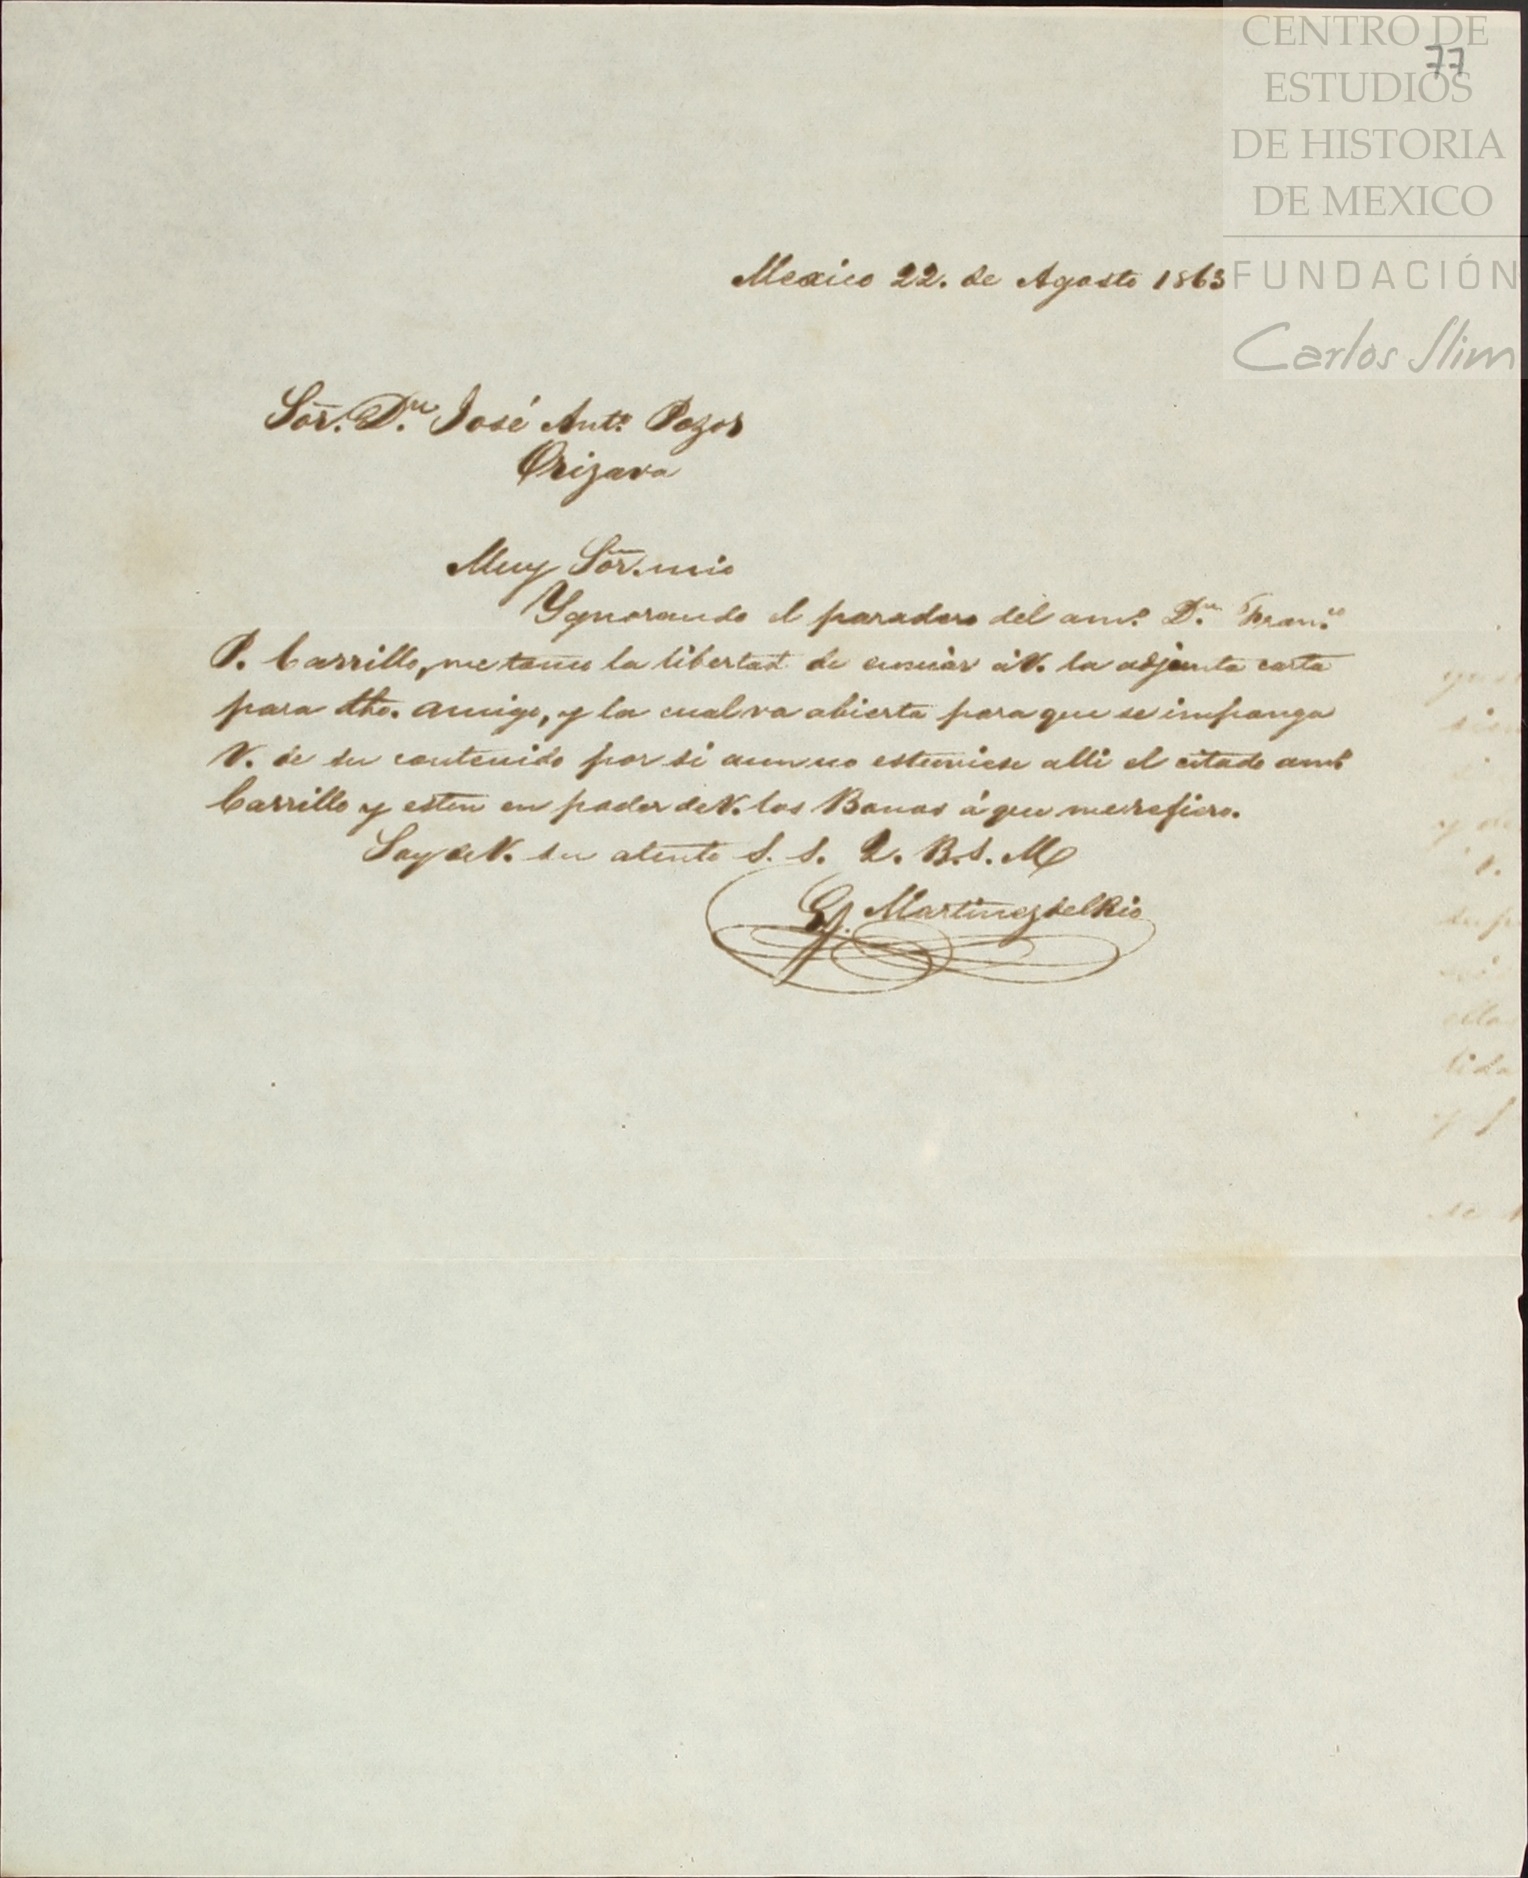 CENTRO DE
ESTUDIOS
DE HISTORIA
DE MEXICO
FUNDACIÓN
Carlos Slim
77
Mexico 22. de Agosto 1863
Sōr. Dn. José Anto. Pozos
Orizava
Muy Sōr. mio
Ygnorando el paradero del amo. Dn. Franco.
P. Carrillo, me tomo la libertad de enviar á V. la adjunta carta
para dho. amigo, y la cual va abierta para que se imponga
V. de su contenido por si aun no estuviese alli el citado amo.
Carrillo y esten en poder de V. los Bonos á que me refiero.
Soy de V. su atento S. S. Q. B. S. M
Martinez del Rio